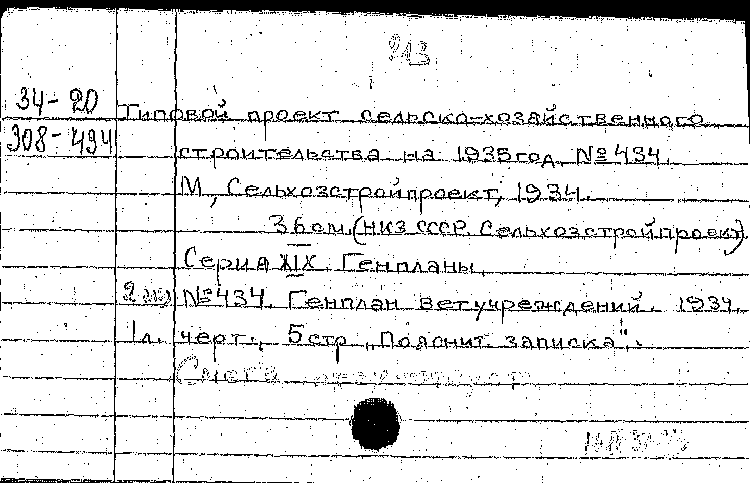 34-20
308-434
Типовой проект сельско-хозяйственного
строительства на 1935год. №434.
М, Сельхозстройпроект, 1934.
36см. (НКЗ СССР. Сельхозстройпроект).
Серия XIX. Генпланы.
№434. Генплан ветучреждений. 1934.
1л. черт., 5стр „Пояснит. записка".
Смета